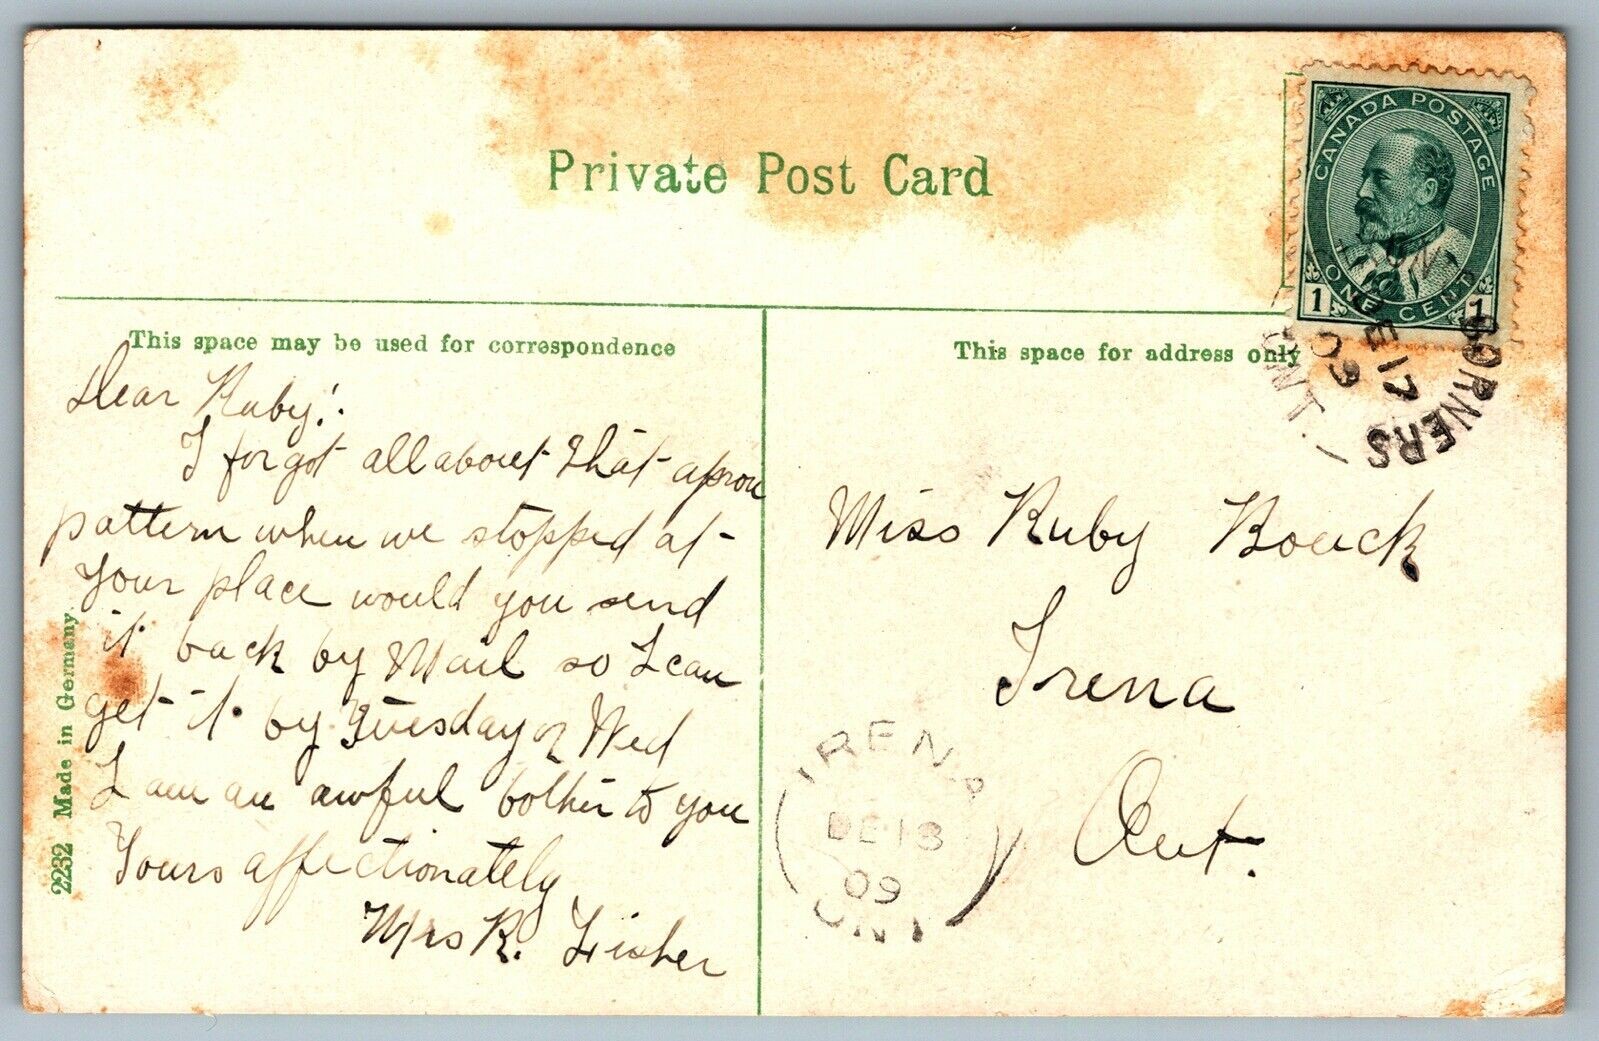 Private Post Card
CANADA POSTAGE
ONE CENT
1 1
CORNERS
DE 17
09
ONT.
This space may be used for correspondence
Dear Ruby!.
I forgot all about that apron
pattern when we stopped at
your place would you send
it back by Mail so I can
get it by Tuesday or Wed
I am an awful bother to you
Yours affectionately
Mrs R. Fisher
This space for address only
Miss Ruby Bouck
Irena
Ont.
IRENA
DE 18
09
ONT
2232 Made in Germany.